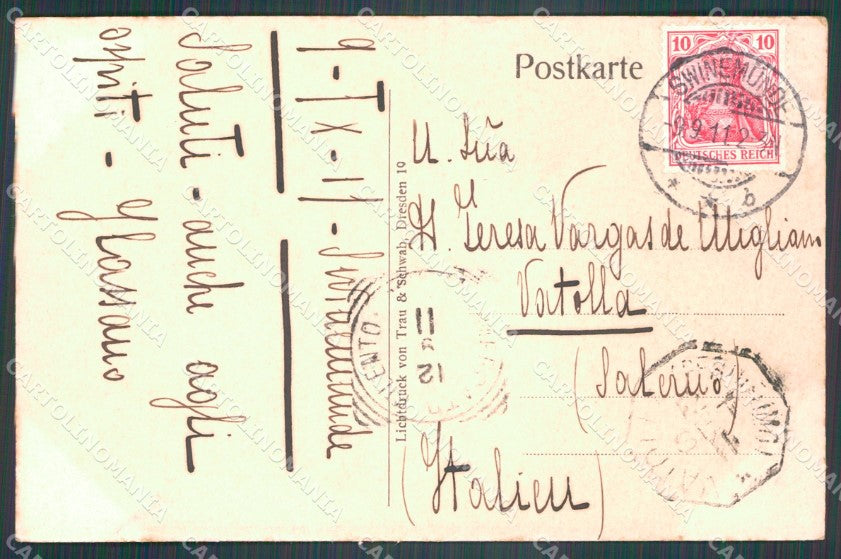 Postkarte
10 10
DEUTSCHES REICH
SWINEMÜNDE
9.9.11.2
* * b
9-IX-11- Swinemünde
Saluti - anche agli
ospiti -
Teresa Vargas de Migliano
Vatolla
(Salerno)
(Italien)
Lichtdruck von Trau & Schwab, Dresden 19
12
11
CARTOLINOMANIA